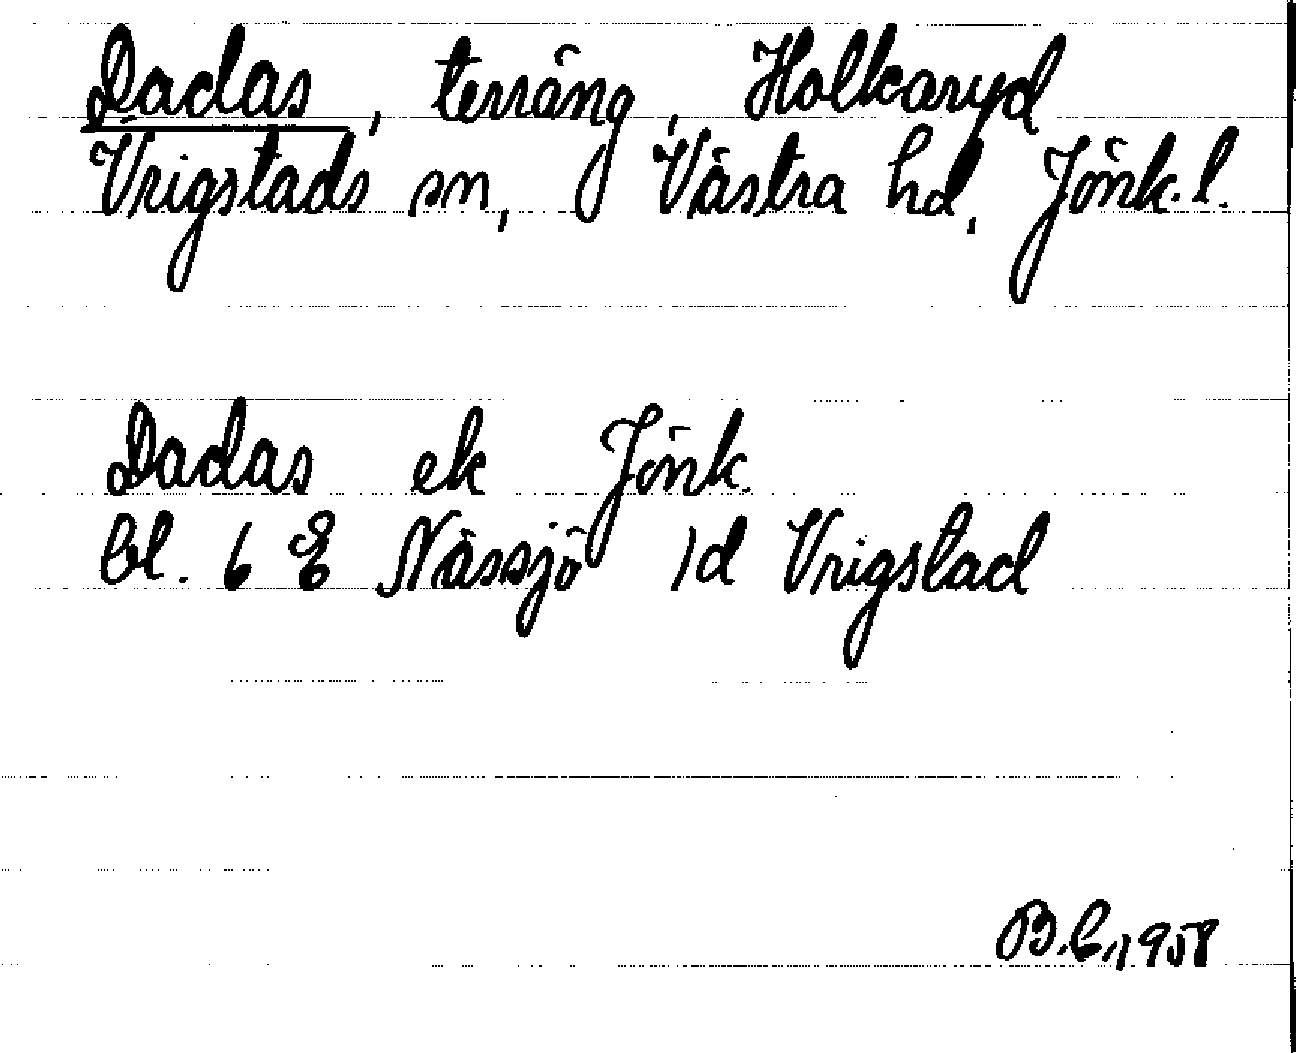 Dadas, terräng, Holkaryd
Vrigstads sn, Västra hd, Jönk. l.
Dadas ek Jönk.
bl. 6 E Nässjö 1d Vrigstad
B.E. 1958